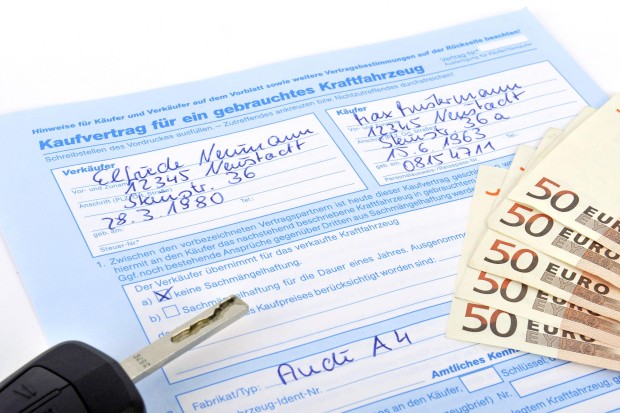 Hinweise für Käufer und Verkäufer auf dem Vorblatt sowie weitere Vertragsbestimmungen auf der Rückseite beachten!
Kaufvertrag für ein gebrauchtes Kraftfahrzeug
Vertrag Nr.
Ausfertigung für Käufer/Verkäufer
Schreibstellen des Vordruckes ausfüllen – Zutreffendes ankreuzen bzw. Nichtzutreffendes durchstreichen!
Verkäufer
Elfriede Neumann
Vor- und Zuname
12345 Neustadt
Anschrift (PLZ,
Steinstr. 36
28.3.1980
geb. am
Tel.:
Steuer-Nr*
Käufer
Max Mustermann
Vor- und
12345 Neustadt
Steinstr. 36a
15.6.1963
geb. am
08154711
1. Zwischen den vorbezeichneten Vertragspartnern ist heute dieser Kaufvertrag
hiermit an den Käufer das nachstehend beschriebene gebrauchte
Ggf. noch bestehende Ansprüche gegenüber Dritten aus Sachmängelhaftung
Der Verkäufer übernimmt für das verkaufte Kraftfahrzeug
a) ☒ keine Sachmängelhaftung.
b) ☐ Sachmängelhaftung für die Dauer eines Jahres. Ausgenommen
des Kaufpreises berücksichtigt worden sind.
Audi A4
Fabrikat/Typ:
Fahrzeug-Ident-Nr.
Amtliches Kennz
Schlüssel
50 EURO
50 EURO
50 EURO
50 EURO
50 EURO